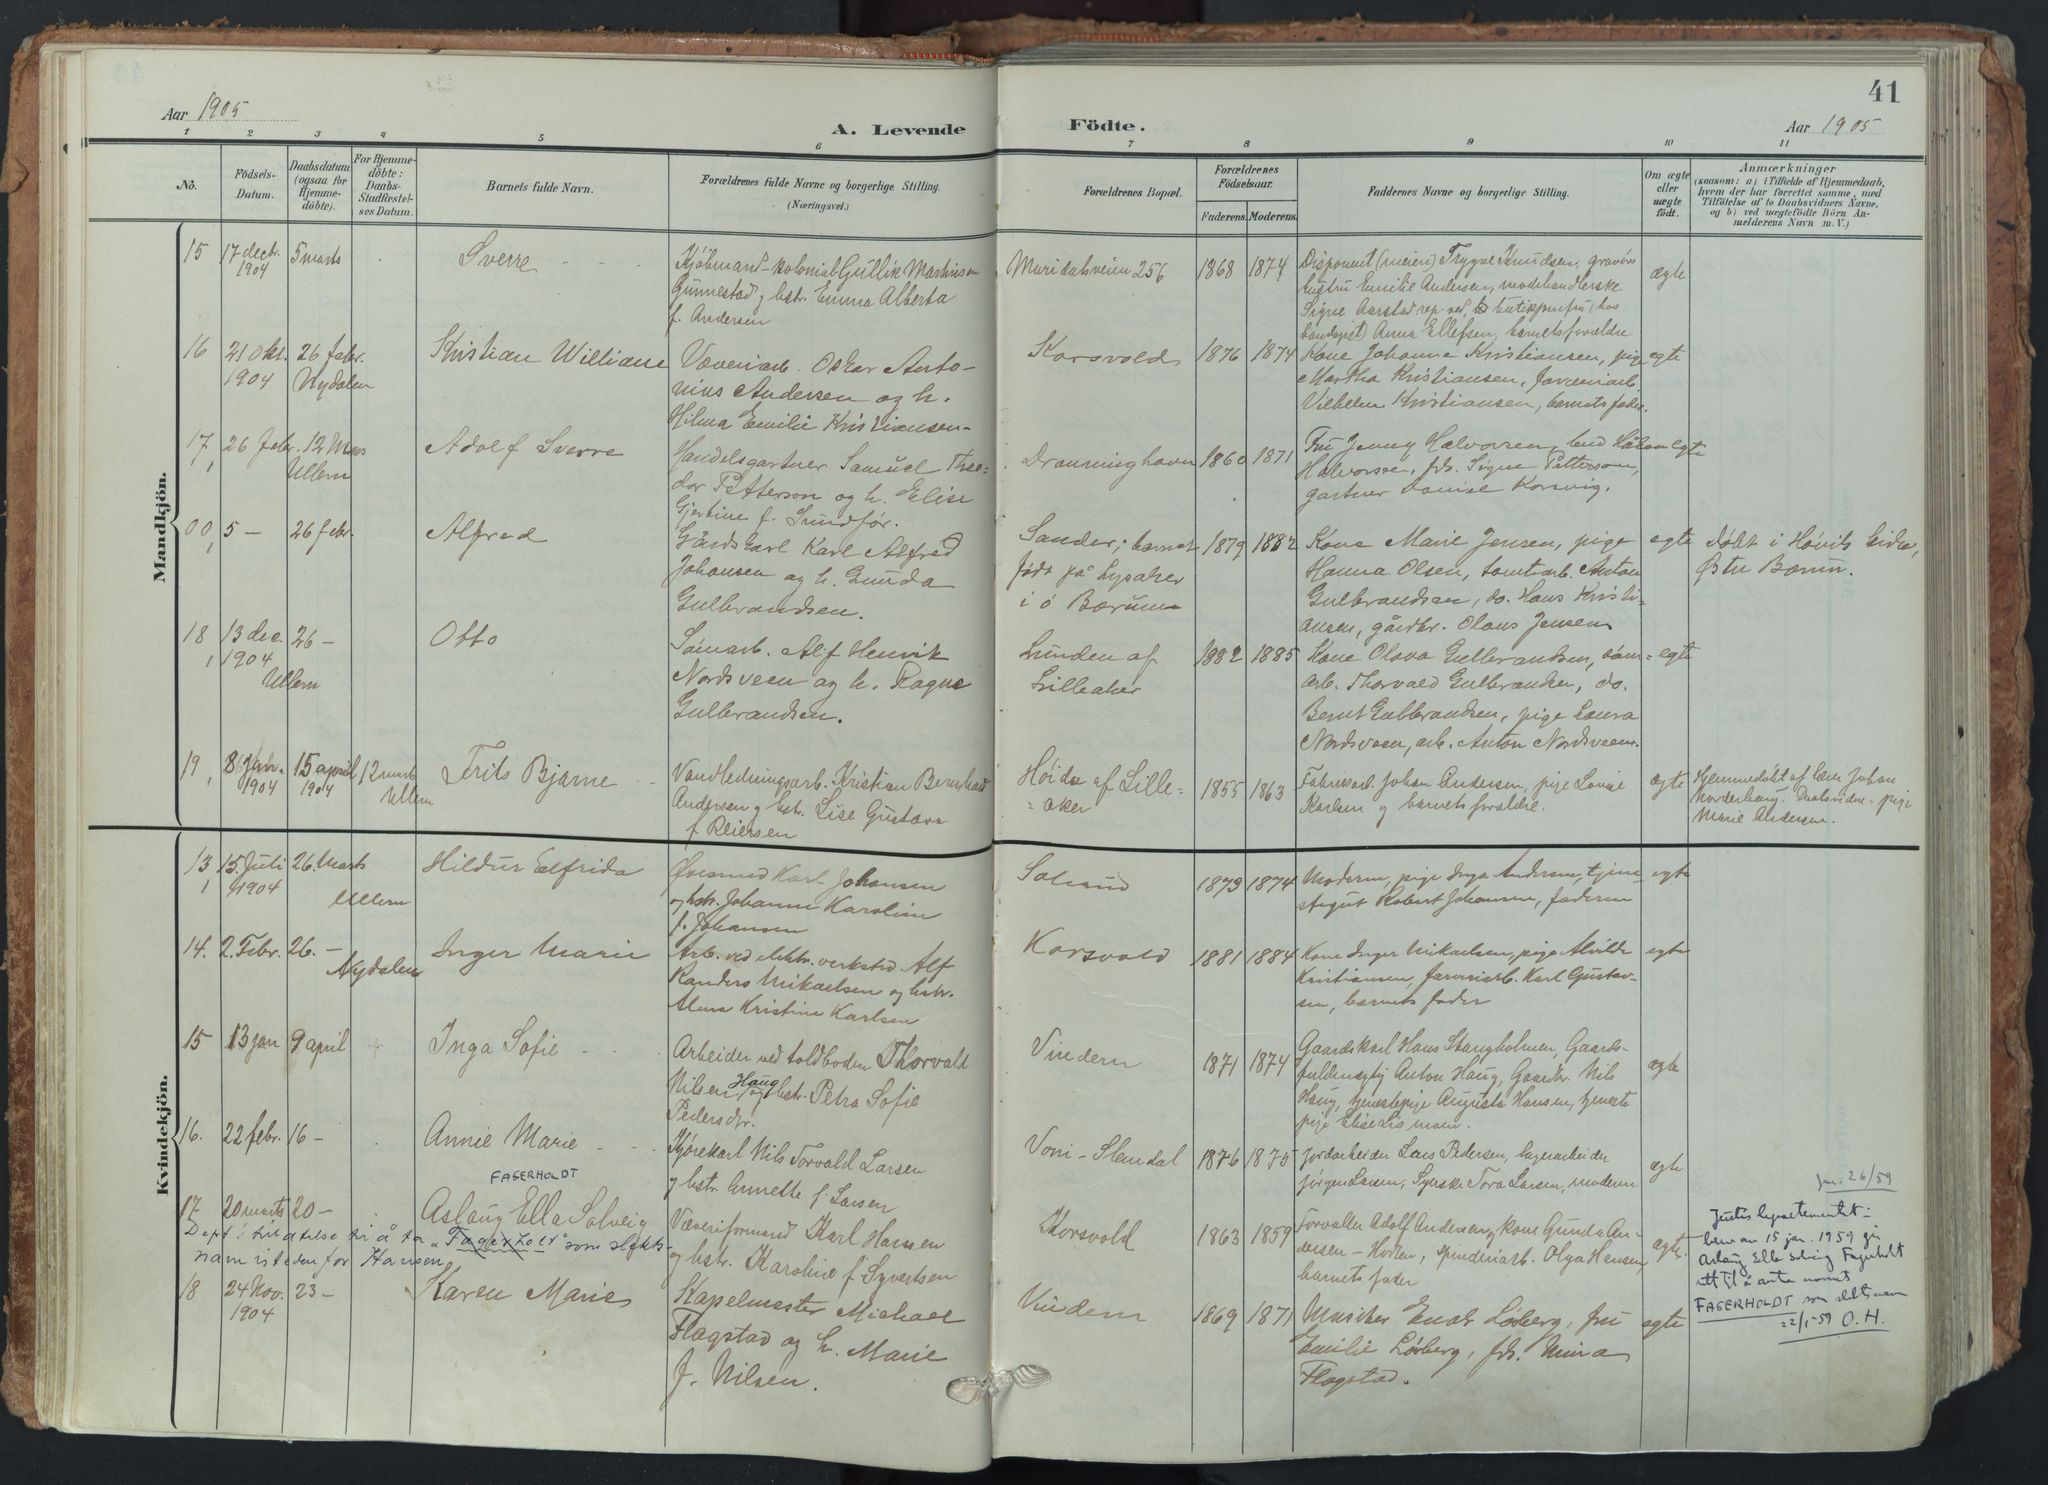 41
Aar 1905
A. Levende Födte.
Aar 1905
1 2 3 4 5 6 7 8 9 10 11
No.
Födsels-Datum.
Daabsdatum (ogsaa for Hjemmedöbte).
For Hjemmedöbte: Daabs-Stadfæstelses Datum.
Barnets fulde Navn.
Forældrenes fulde Navne og borgerlige Stilling.
(Næringsvei.)
Forældrenes Bopæl.
Forældrenes Födselsaar.
Faderens. Moderens.
Faddernes Navne og borgerlige Stilling.
Om ægte eller uægte födt.
Anmærkninger
(saasom: a) i Tilfælde af Hjemmedaab,
hvem der har forrettet samme, med
Tilföielse af to Daabsvidners Navne,
og b) ved uægtefödte Börn Anmelderens Navn m. V.)
Mandkjön.
15 17 decbr. 1904 5 marts Sverre
Kjøbmand - kolonial Gullik Martinsen
Gunnestad og hstr. Emma Alberta
f. Andersen
Maridalsveien 256 1868 1874
Disponent (meieri) Trygve Knudsen, gravør
Emilie Andersen, modehandlerske
Signe Aarstad
Anna Ellefsen, barnets forældre
ægte
16 21 okt. 1904 26 febr. Nydalen Kristian William
Væveriarb. Oskar Anto-
nius Andersen og h.
Hilma Emilie Kristiansen
Korsvold 1876 1874
Kone Johanne Kristiansen, pige
Martha Kristiansen, farveriarb.
Vilhelm Kristiansen, barnets fader.
egte
17, 26 febr. 12 Mars Ullern Adolf Sverre
Handelsgartner Samuel Theo-
dor Pettersson og h. Elise
Gjertine f. Sundfør.
Dronninghavn 1860 1871
Fru Jenny Halvorsen,
Halvorsen, frk. Signe Petterson,
gartner Korsvig.
egte
00, 5 - 26 febr. Alfred
Gårdskarl Karl Alfred
Johansen og h. Gunda
Gulbrandsen.
Sander; barnet
født på Lysaker
i ø Bærum
1879 1882
Kone Marie Jensen, pige
Hanna Olsen, tomtearb. Anton
Gulbrandsen, do. Hans Kristi-
ansen, gårdbr. Olaus Jensen
egte
Døbt i Høvik kirke,
Østre Bærum.
18, 13 dec. 1904 26 - Ullern Otto
Sømarb. Alf Henrik
Nordsveen og h. Ragna
Gulbrandsen.
Lunden af
Lilleaker
1882 1885
Kone Olava Gulbrandsen, søm-
arb. Thorvald Gulbrandsen, do.
Bernt Gulbrandsen, pige Laura
Nordsveen, arb. Anton Nordsveen.
egte
19, 8 jan. 1904 15 april 1904 12 marts Ullern Frits Bjarne
Vandledningsarb. Kristian Bernhard
Andersen og hstr. Lise Gustava
f. Reiersen
Høida af Lille-
aker
1855 1863
Fabrikarb. Johan Andersen, pige Lovise
Karlsen og barnets forældre.
ægte
Hjemmedøbt af Johan
Norderhaug. Daabsvidne - pige
Marie Andersen.
Kvindekjön.
13, 15 Juli 1904 26. Marts Ullern Hildur Elfrida
Karl Johansen
og hstr. Johanne Karoline
f. Johansen
Solsund 1873 1874
Moderen, pige Inga Andersen, tjene-
stegut Robert Johansen, faderen
egte
14. 2. Febr. 26. - Nydalen Inger Marie
Arb. ved elektr. verksted Alf
Randers Mikaelsen og hstr.
Alma Kristine Karlsen
Korsvold 1881 1884
Kone Inger Mikaelsen, pige Alvilde
Kristiansen, farveriarb. Karl Gustav-
sen, barnets fader
egte
15 13 jan 9 april Inga Sofie
Arbeider ved toldboden Thorvald
Nilsen Haug og hstr. Petra Sofie
Pedersdtr.
Vindern 1871 1874
Gaardskarl Hans Stangholmen, Gaards-
fuldmægtig Anton Haug, Gaardbr. Nils
Haug, tjenestepige Augusta Hansen, tjeneste
pige Elise
ægte
16. 22 febr. 16 - Annie Marie
Kjørekarl Nils Torvald Larsen
og hstr. Annette f. Larsen
Voni - Slemdal 1876 1875
Jordarbeider Lars Pedersen, lagerarbeider
Jørgen Larsen, Syerske Tora Larsen, moderen
ægte
FAGERHOLDT
17 20 marts 20 - Aslaug Ella Solveig
Dept: tillatelse til å ta "Fagerholt" som slekts-
navn istedenfor Hansen
Væveriformand Karl Hansen
og hstr. Karoline f. Syvertsen
Korsvold 1863 1859
Forvalter Adolf Andersen, kone Gunda An-
dersen - Horten, spinderiarb. Olga Hansen,
barnets fader
ægte.
jnr. 26/59
Justisdepartementet
15 jan. 1959 gir
Aslaug Ella Solveig Fagerholt
rett til å anta navnet
FAGERHOLDT som slektsnavn
22/1-59 O. H.
18 24 Nov. 1904 23 - Karen Marie
Kapelmester Michael
Flagstad og h. Marie
f. Nilsen.
Vindern 1869 1871
Musiker Løberg, fru
Emilie Løberg, frk. Mina
Flagstad.
egte